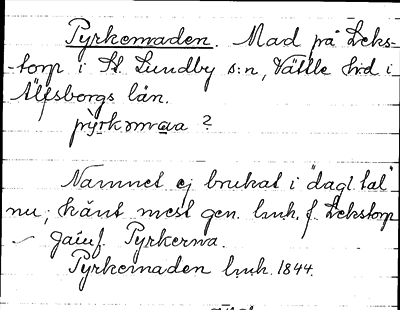 Pyrkemaden. Mad på Leks-
-torp i St. Lundby s:n, Vättle hd i
Älfsborgs län.
pyrkəmaa ?
Namnet ej brukat i "dagl. tal"
nu; känt mest gen. lmh. f. Lekstorp
– Jämf. Pyrkerna.
Pyrkemaden lmh. 1844.